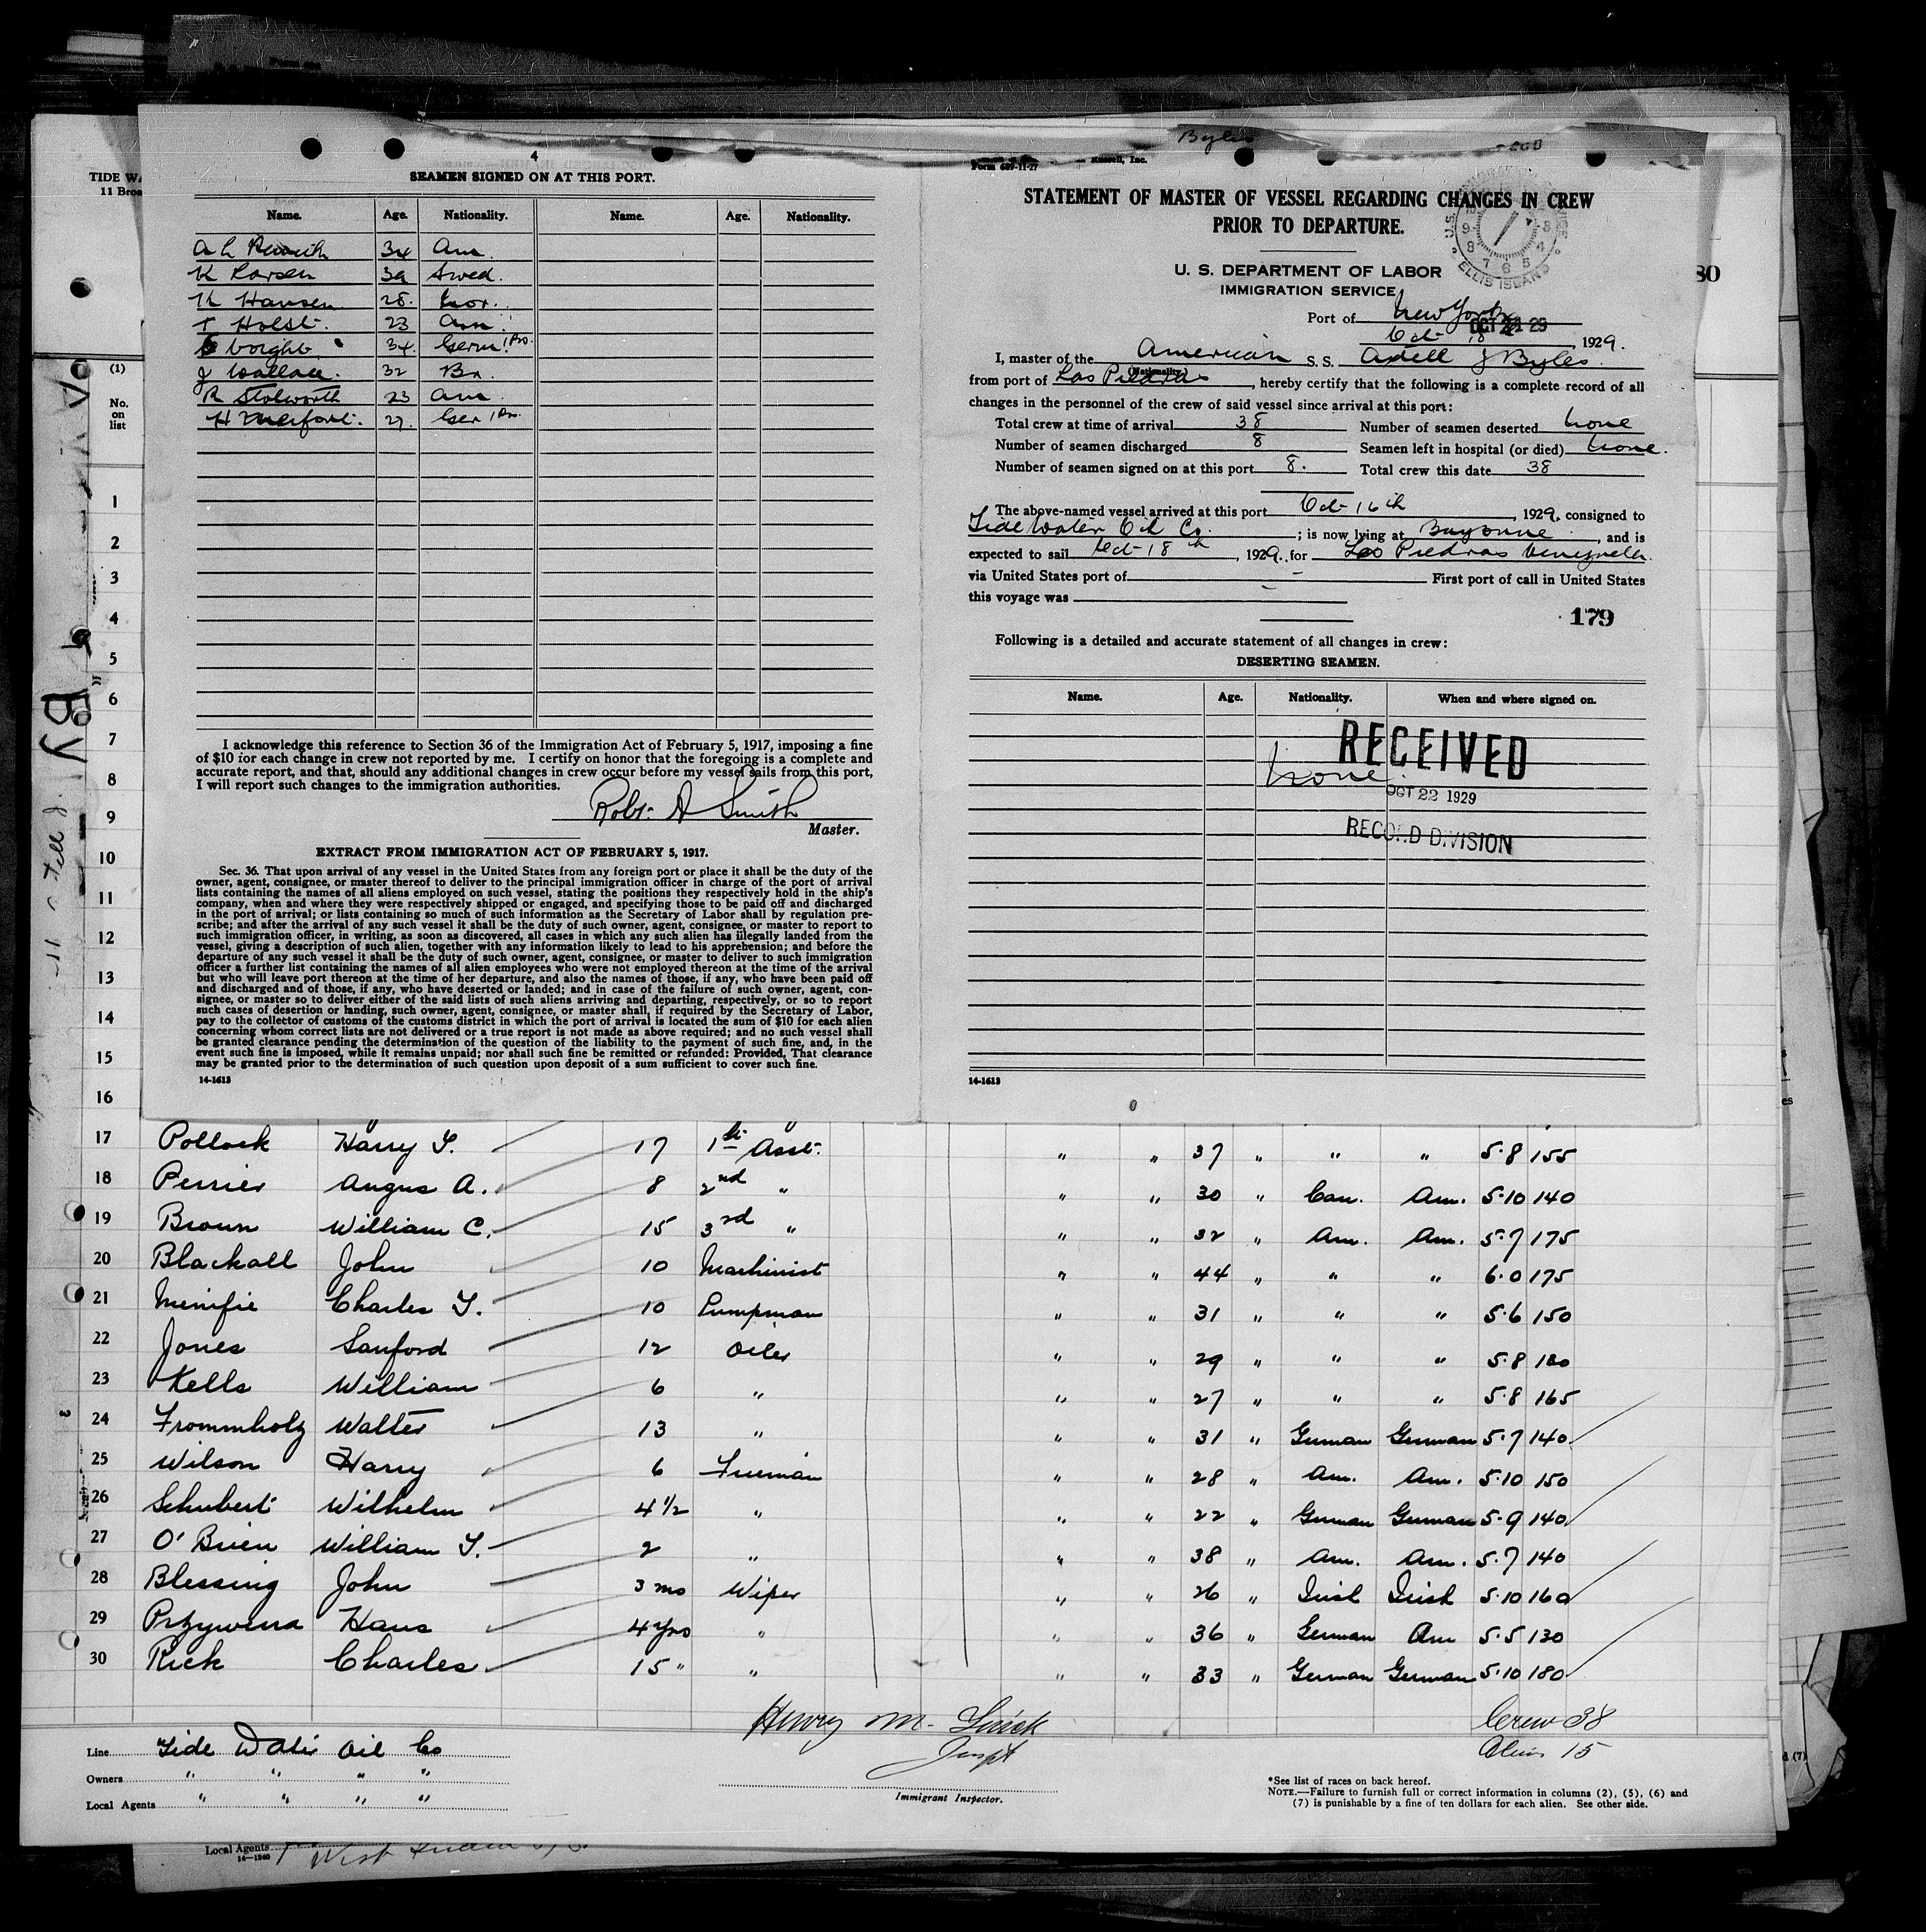 4
SEAMEN SIGNED ON AT THIS PORT.
Name. Age. Nationality. Name. Age. Nationality.
34 Am.
K Larsen 39 Swed.
K Hansen 28. Nor.
T Holst. 23 Am.
Voight. 34. Germ. 1 Prs.
J Wallace. 32 Br.
R Stolworth 23 Am.
H 27. Ger 1 Prs.
I acknowledge this reference to Section 36 of the Immigration Act of February 5, 1917, imposing a fine
of $10 for each change in crew not reported by me. I certify on honor that the foregoing is a complete and
accurate report, and that, should any additional changes in crew occur before my vessel sails from this port,
I will report such changes to the immigration authorities.
Robt. A Smith
Master.
EXTRACT FROM IMMIGRATION ACT OF FEBRUARY 5, 1917.
Sec. 36. That upon arrival of any vessel in the United States from any foreign port or place it shall be the duty of the
owner, agent, consignee, or master thereof to deliver to the principal immigration officer in charge of the port of arrival
lists containing the names of all aliens employed on such vessel, stating the positions they respectively hold in the ship's
company, when and where they were respectively shipped or engaged, and specifying those to be paid off and discharged
in the port of arrival; or lists containing so much of such information as the Secretary of Labor shall by regulation pre-
scribe; and after the arrival of any such vessel it shall be the duty of such owner, agent, consignee, or master to report to
such immigration officer, in writing, as soon as discovered, all cases in which any such alien has illegally landed from the
vessel, giving a description of such alien, together with any information likely to lead to his apprehension; and before the
departure of any such vessel it shall be the duty of such owner, agent, consignee, or master to deliver to such immigration
officer a further list containing the names of all alien employees who were not employed thereon at the time of the arrival
but who will leave port thereon at the time of her departure, and also the names of those, if any, who have been paid off
and discharged and of those, if any, who have deserted or landed; and in case of the failure of such owner, agent, con-
signee, or master so to deliver either of the said lists of such aliens arriving and departing, respectively, or so to report
such cases of desertion or landing, such owner, agent, consignee, or master shall, if required by the Secretary of Labor,
pay to the collector of customs of the customs district in which the port of arrival is located the sum of $10 for each alien
concerning whom correct lists are not delivered or a true report is not made as above required; and no such vessel shall
be granted clearance pending the determination of the question of the liability to the payment of such fine, and, in the
event such fine is imposed, while it remains unpaid; nor shall such fine be remitted or refunded: Provided, That clearance
may be granted prior to the determination of such question upon deposit of a sum sufficient to cover such fine.
14-1613
Byles
Form 689-11-27 Russell, Inc.
STATEMENT OF MASTER OF VESSEL REGARDING CHANGES IN CREW
PRIOR TO DEPARTURE.
U.S. ELLIS ISLAND
U. S. DEPARTMENT OF LABOR
IMMIGRATION SERVICE
Port of New York
Oct 18, 1929.
I, master of the American S. S. Axtell J Byles
(Nationality)
from port of Las Piedras, hereby certify that the following is a complete record of all
changes in the personnel of the crew of said vessel since arrival at this port:
Total crew at time of arrival 38 Number of seamen deserted None
Number of seamen discharged 8 Seamen left in hospital (or died) None.
Number of seamen signed on at this port 8. Total crew this date 38
The above-named vessel arrived at this port Oct 16th, 1929, consigned to
Tide Water Oil Co.; is now lying at Bayonne, and is
expected to sail Oct 18th, 1929, for Las Piedras Venezuela.
via United States port of — First port of call in United States
this voyage was
179
Following is a detailed and accurate statement of all changes in crew:
DESERTING SEAMEN.
Name. Age. Nationality. When and where signed on.
RECEIVED
None.
OCT 22 1929
RECORD DIVISION
14-1613
TIDE WA
11 Broa
80
(1)
No.
on
list
1
2
3
4
5
6
7
8
9
10
11
12
13
14
15
16
17 Pollock Harry T. 17 1st Asst. " " 37 " " " 5·8 155
18 Perrier Angus A. 8 2nd " " " 30 " Can. Am. 5·10 140
19 Brown William C. 15 3rd " " " 32 " Am. Am. 5·7 175
20 Blackall John 10 Machinist " " 44 " " " 6·0 175
21 Menifie Charles T. 10 Pumpman " " 31 " " " 5·6 150
22 Jones Sanford 12 Oiler " " 29 " " " 5·8 180
23 Kells William 6 " " " 27 " " " 5·8 165
24 Frommholz Walter 13 " " " 31 " German German 5·7 140
25 Wilson Harry 6 Fireman " " 28 " Am. Am. 5·10 150
26 Schubert Wilhelm 4½ " " " 22 " German German 5·9 140
27 O'Brien William T. 2 " " " 38 " Am. Am. 5·7 140
28 Blessing John 3 mo Wiper " " 26 " Irish Irish 5·10 160
29 Przywerra Hans 4 yrs " " " 36 " German Am 5·5 130
30 Rick Charles 15 " " " " 33 " German German 5·10 180
Henry M. Inspt
Crew 38
Aliens 15
Line Tide Water Oil Co
Owners " " " "
Local Agents " " " "
Immigrant Inspector.
*See list of races on back hereof.
NOTE.—Failure to furnish full or correct information in columns (2), (5), (6) and
(7) is punishable by a fine of ten dollars for each alien. See other side.
Local Agents
14-1240